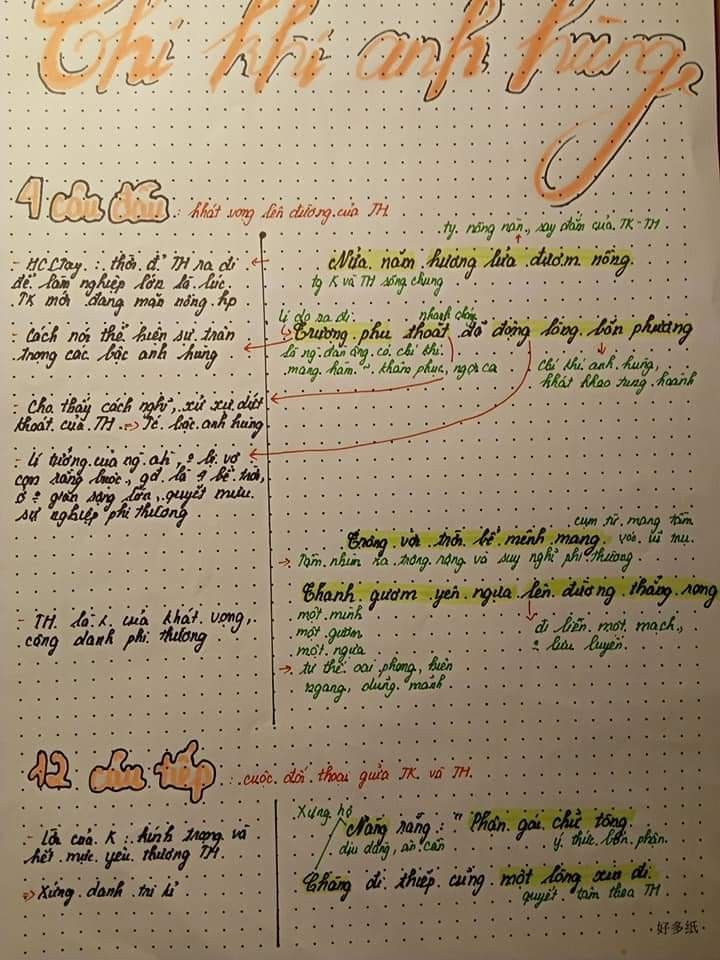 Chí khí anh hùng
4 câu đầu : khát vọng lên đường của TH
ty nồng nàn, say đắm của TK-TH
- HCLTay : thời đ' TH ra đi
để làm nghiệp lớn là lúc
TK mới đang mặn nồng hp
Nửa năm hương lửa đương nồng
ty K và TH sống chung
lí do ra đi
nhanh chóng
- Cách nói thể hiện sự trân
trọng các bậc anh hùng
Trượng phu thoắt đã động lòng bốn phương
là ng đàn ông có chí khí
mang hàm ~ khâm phục, ngợi ca
chí khí anh hùng,
khát khao tung hoành
- Cho thấy cách nghĩ, xử xự dứt
khoát của TH => Tc bậc anh hùng
- Lí tưởng của ng ah, ko bị vợ
con ràng buộc, gđ là bể trời,
ở ko gian rộng lớn, quyết mưu
sự nghiệp phi thường
cụm từ mang tầm
Trông vời trời bể mênh mang
vóc vũ trụ
-> Tầm nhìn ra trông rộng và suy nghĩ phi thường
Thanh gươm yên ngựa lên đường thẳng rong
- TH là k của khát vọng,
công danh phi thường
một mình
một gươm
một ngựa
-> tư thế oai phong, hiên
ngang, dũng mãnh
đi liền một mạch,
ko lưu luyến
12 câu tiếp : cuộc đối thoại giữa TK và TH
Xưng hô
- Lời của K : kính trọng và
hết mực yêu thương TH
=> Xứng danh tri kỉ
Nàng rằng : " Phận gái chữ tòng
dịu dàng, ân cần
ý thức bổn phận
Chàng đi thiếp cũng một lòng xin đi
quyết tâm theo TH
好多纸